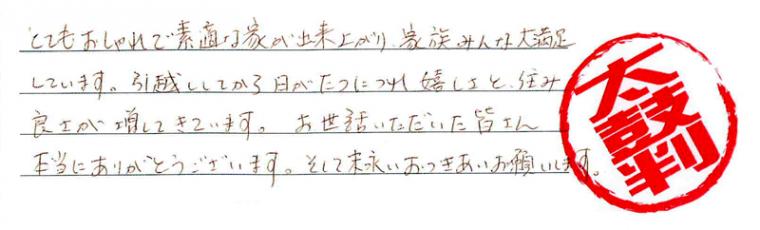 とてもおしゃれで素適な家が出来上がり、家族みんな大満足
しています。引越ししてから日がたつにつれ嬉しさと、住み
良さが増してきています。お世話いただいた皆さん
本当にありがとうございます。そして末永いおつきあいお願いします。
太鼓判